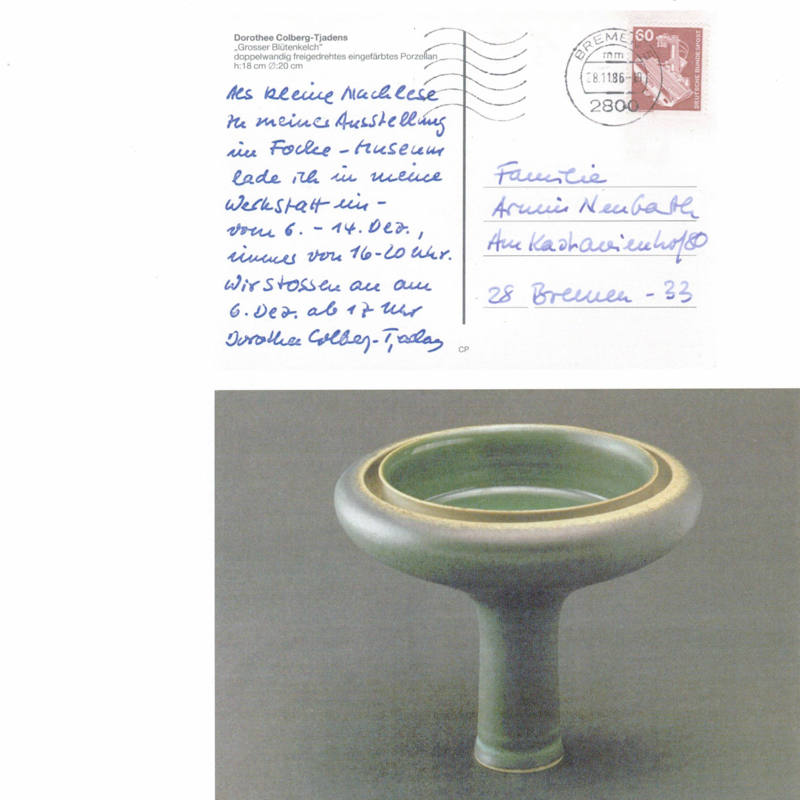 Dorothee Colberg-Tjadens
„Grosser Blütenkelch“
doppelwandig freigedrehtes eingefärbtes Porzellan
h:18 cm ∅:20 cm
Als kleine Nachlese
zu meiner Ausstellung
im Focke-Museum
lade ich in meine
Werkstatt ein -
vom 6. - 14. Dez.,
immer von 16-20 Uhr.
Wir stossen an am
6. Dez. ab 17 Uhr
Dorothea Colberg-Tjadens
CP
BREMEN
mm
28.11.86-19
2800
60
DEUTSCHE BUNDESPOST
Familie
Armin Neubarth
Am Kastanienhof 80
28 Bremen - 33